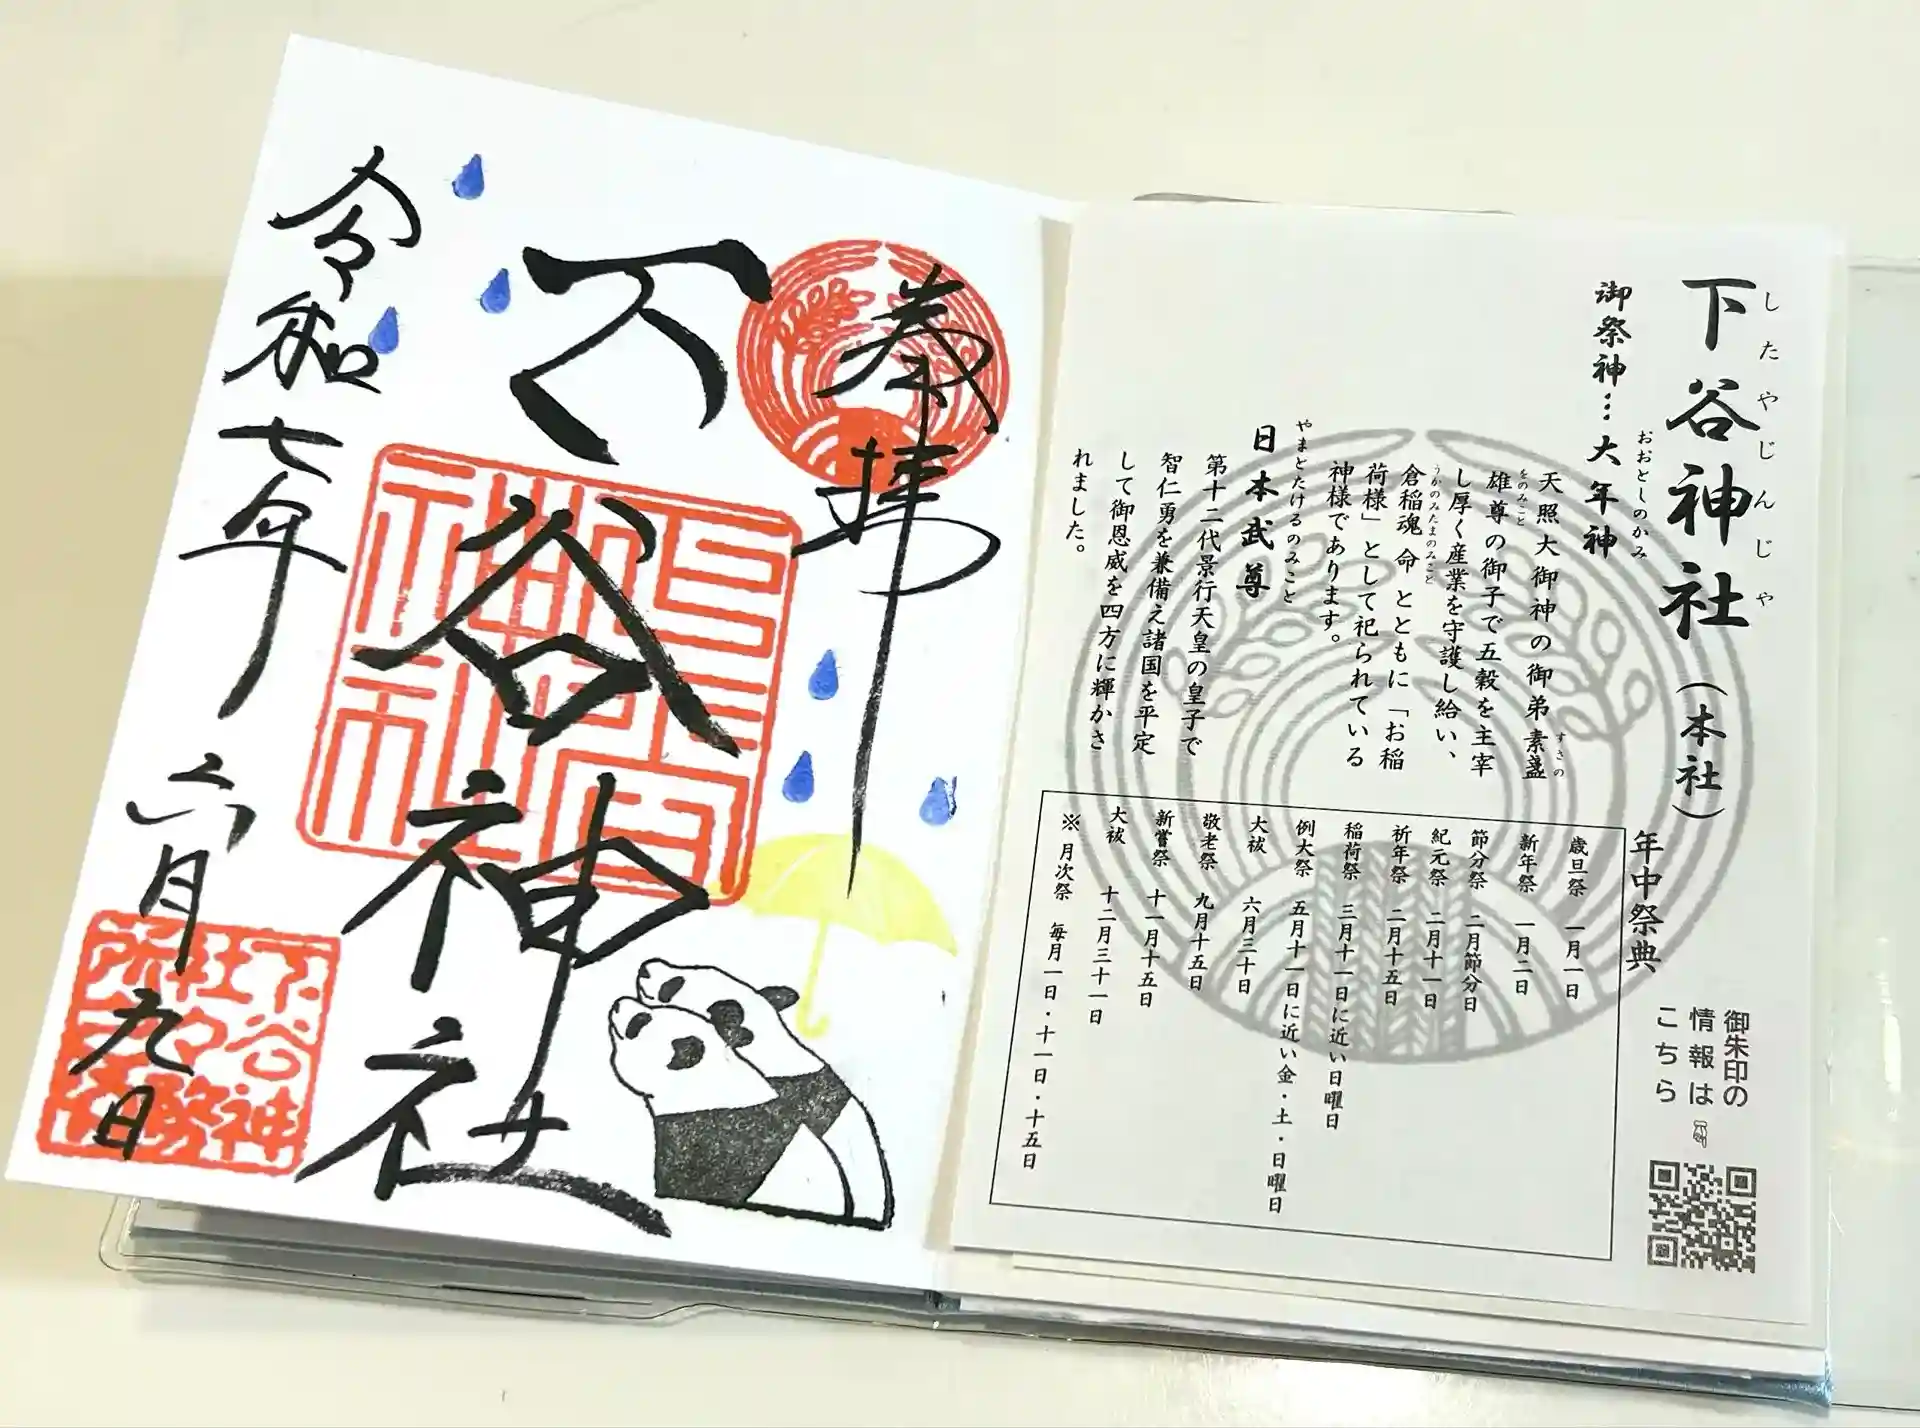 奉拝
下谷神社
令和七年 六月九日
下谷神社
下谷神
社々務
所之印
下谷神社（本社）
したやじんじゃ
御祭神…大年神
おおとしのかみ
天照大御神の御弟素盞
すさの
雄尊の御子で五穀を主宰
をのみこと
し厚く産業を守護し給い、
倉稲魂命とともに「お稲
うかのみたまのみこと
荷様」として祀られている
神様であります。
日本武尊
やまとたけるのみこと
第十二代景行天皇の皇子で
智仁勇を兼備え諸国を平定
して御恩威を四方に輝かさ
れました。
年中祭典
歳旦祭 一月一日
新年祭 一月二日
節分祭 二月節分日
紀元祭 二月十一日
祈年祭 二月十五日
稲荷祭 三月十一日に近い日曜日
例大祭 五月十一日に近い金・土・日曜日
大祓 六月三十日
敬老祭 九月十五日
新嘗祭 十一月十五日
大祓 十二月三十一日
※月次祭 毎月一日・十一日・十五日
御朱印の
情報は
こちら